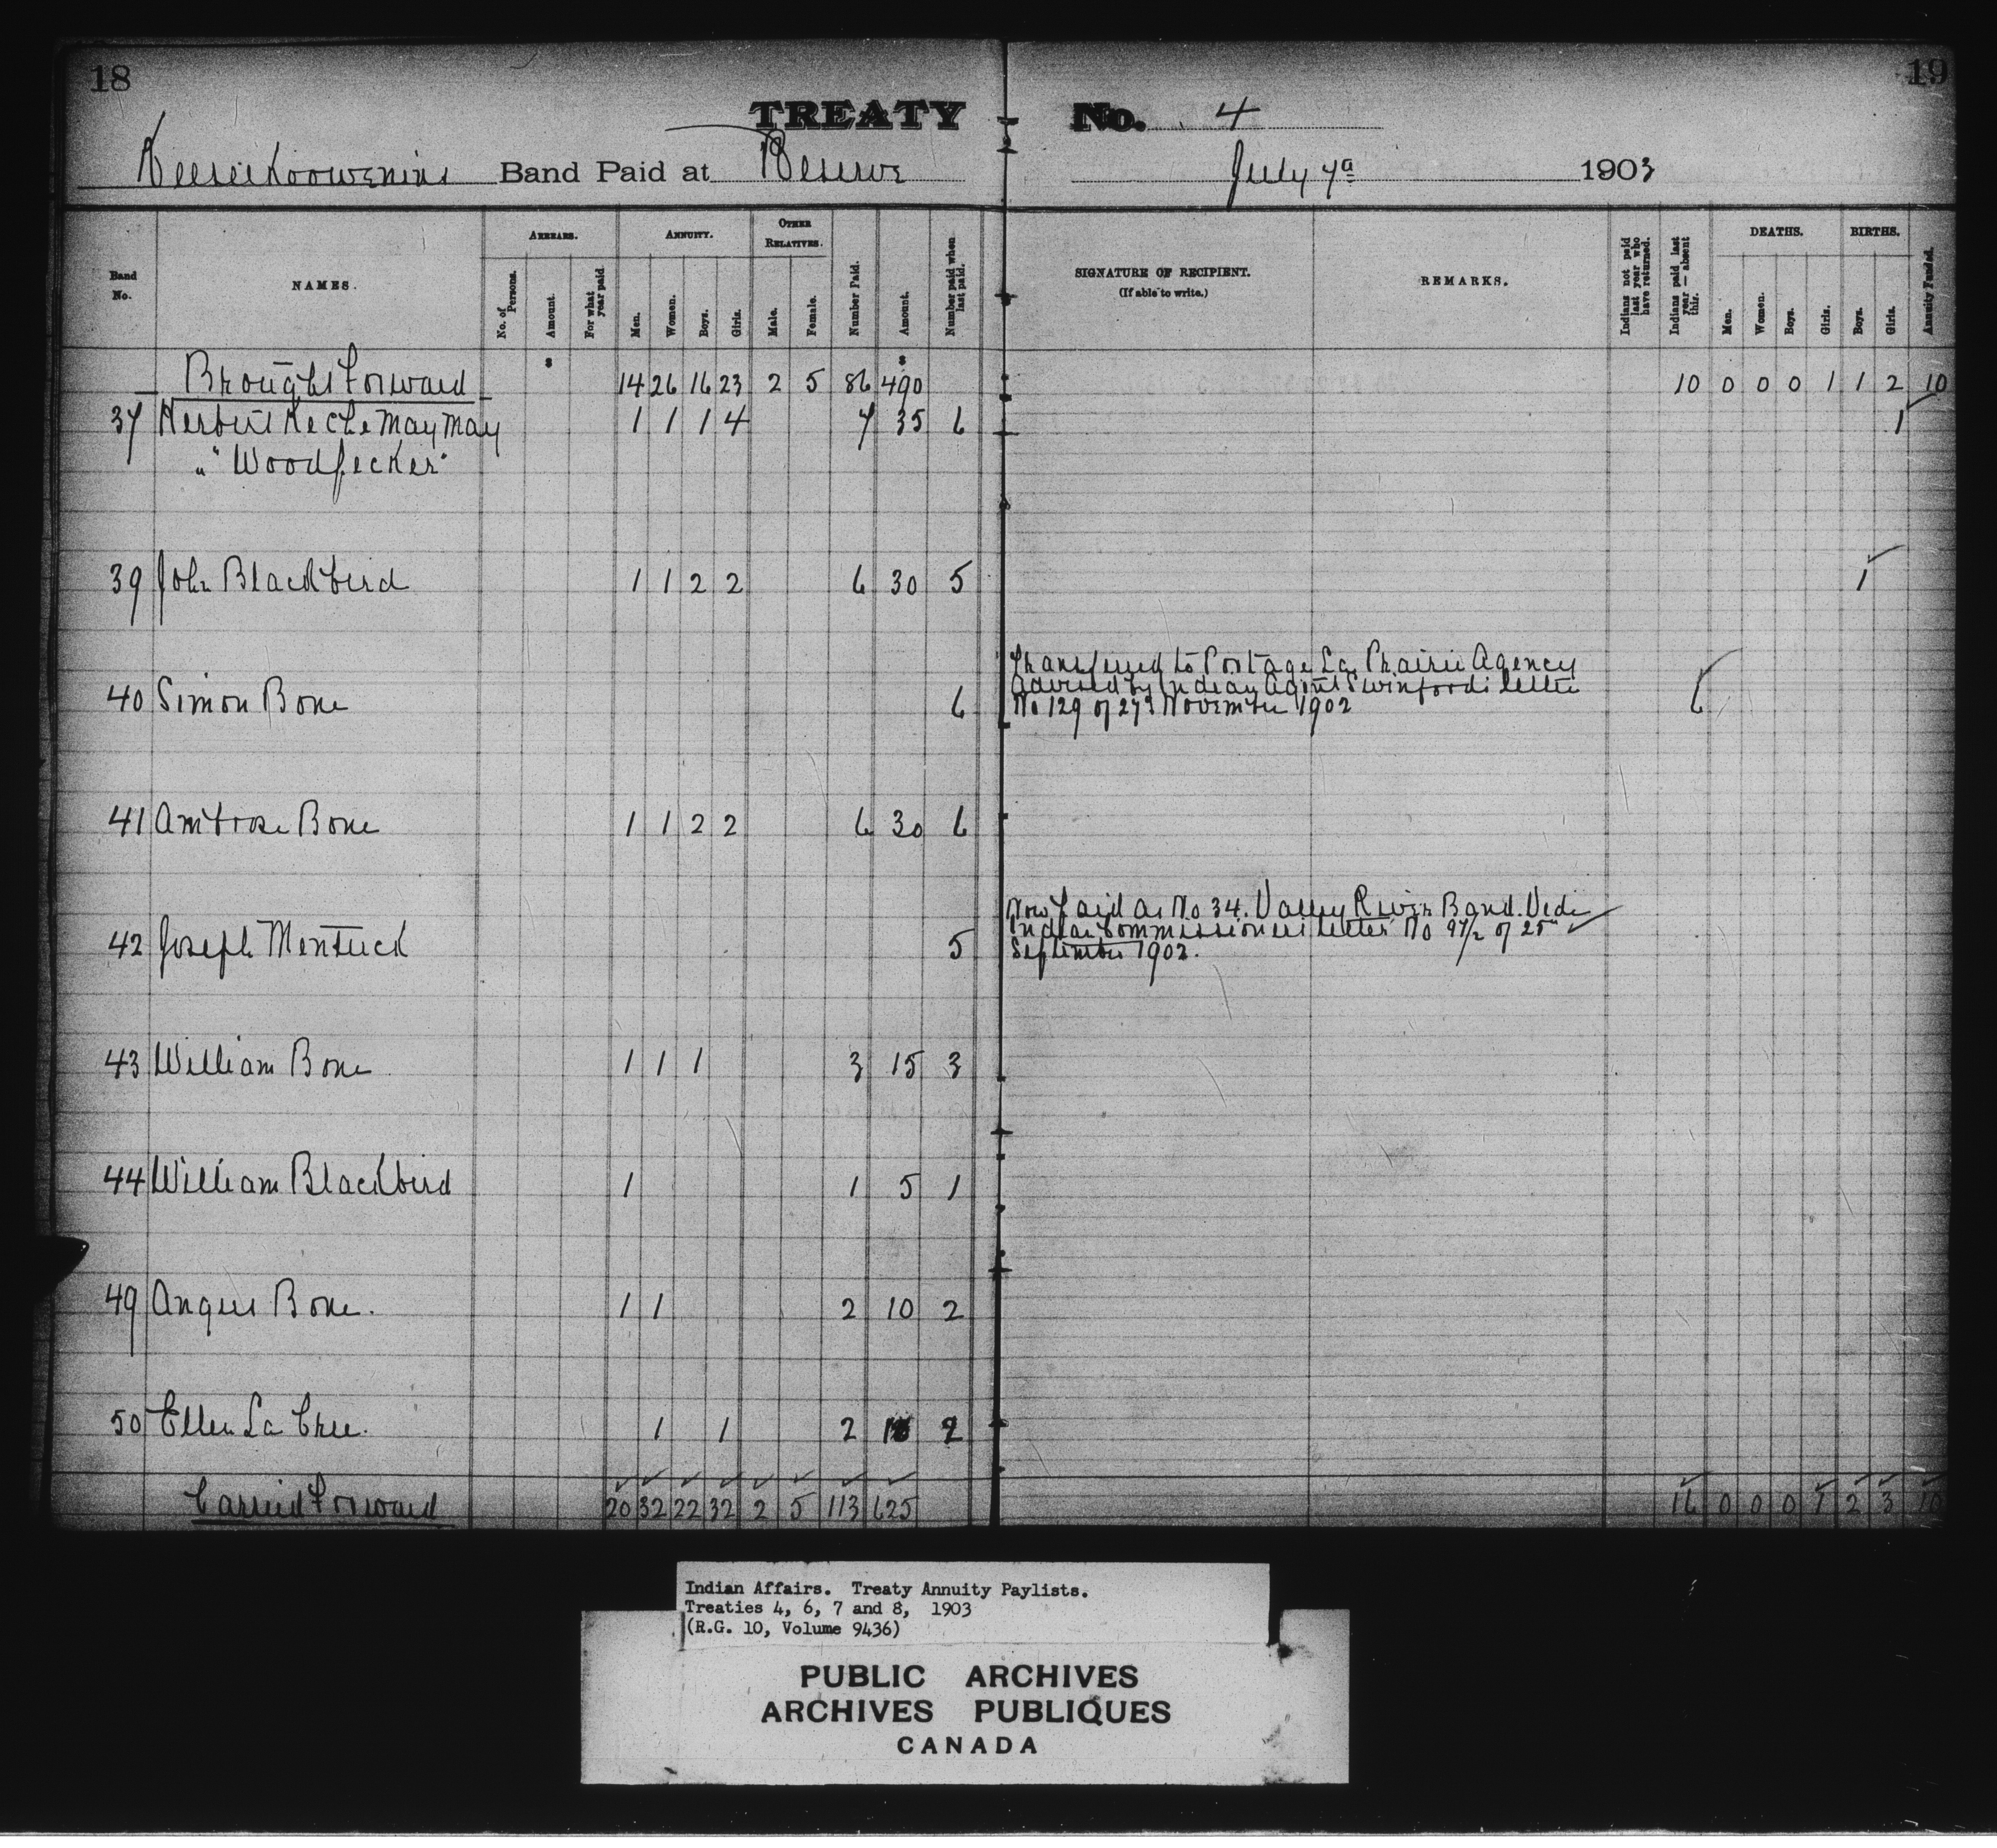 18
19
TREATY No. 4
Keeseekoowenins Band Paid at Reserve July 7th 1903
Band No.
NAMES.
ARREARS.
No. of Persons.
Amount.
For what year paid.
ANNUITY.
Men.
Women.
Boys.
Girls.
OTHER RELATIVES.
Male.
Female.
Number Paid.
Amount.
Number paid when last paid.
SIGNATURE OF RECIPIENT.
(If able to write.)
REMARKS.
Indians not paid last year who have returned.
Indians paid last year—absent this.
DEATHS.
Men.
Women.
Boys.
Girls.
BIRTHS.
Boys.
Girls.
Annuity Funded.
$ $
Brought Forward 14 26 16 23 2 5 86 490 10 0 0 0 1 1 2 10
37 Herbert Keche may may 1 1 1 4 7 35 6 1
"Woodpecker"
39 John Blackbird 1 1 2 2 6 30 5 1
Transferred to Portage La Prairie Agency
40 Simon Bone 6 Advised by Indian Agent Swinford's letter 6
No 129 of 27th November 1902
41 Ambrose Bone 1 1 2 2 6 30 6
Now paid as No 34. Valley River Band. Vide
42 Joseph Mentuck 5 Indian Commissioners letter No 97/2 of 25th
September 1902.
43 William Bone 1 1 1 3 15 3
44 William Blackbird 1 1 5 1
49 Angus Bone. 1 1 2 10 2
50 Ellen La Cree. 1 1 2 10 2
Carried Forward 20 32 22 32 2 5 113 625 16 0 0 0 1 2 3 10
Indian Affairs. Treaty Annuity Paylists.
Treaties 4, 6, 7 and 8, 1903
(R.G. 10, Volume 9436)
PUBLIC ARCHIVES
ARCHIVES PUBLIQUES
CANADA